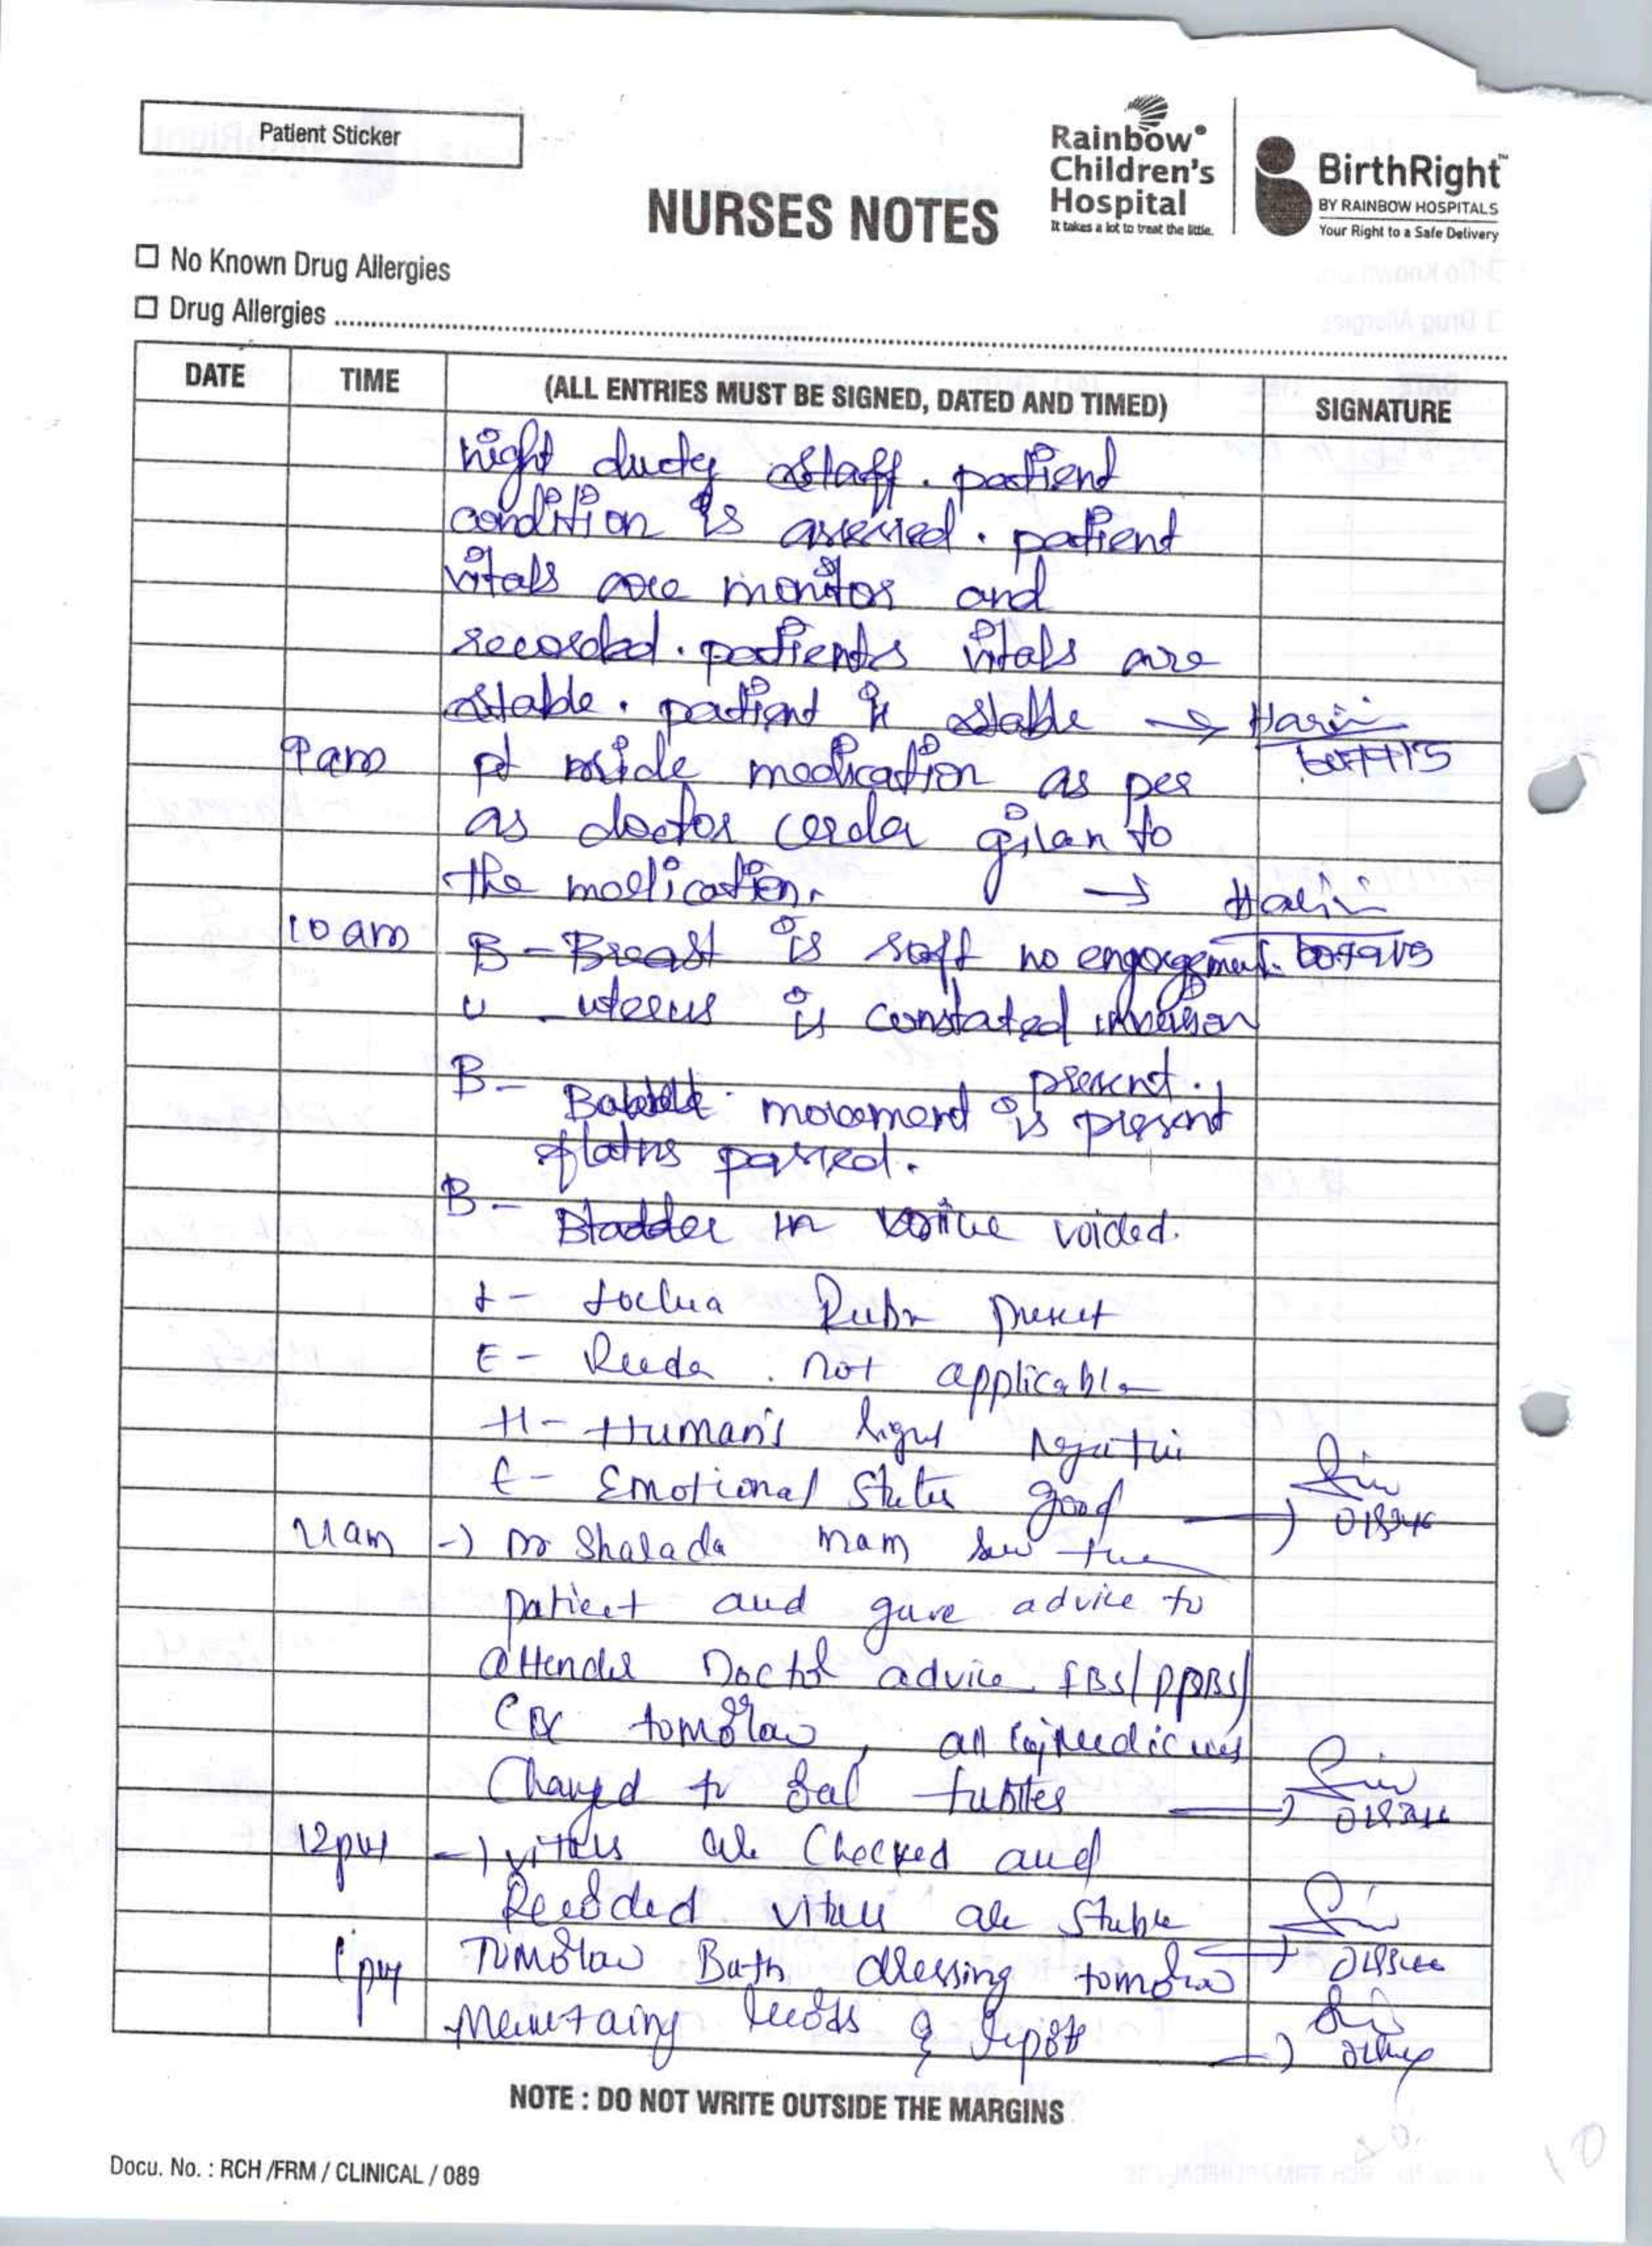 Patient Sticker
Rainbow®
Children's
Hospital
It takes a lot to treat the little.
BirthRight™
BY RAINBOW HOSPITALS
Your Right to a Safe Delivery
NURSES NOTES
No Known Drug Allergies
Drug Allergies
DATE TIME (ALL ENTRIES MUST BE SIGNED, DATED AND TIMED) SIGNATURE
night duty staff. patient
condition is assessed. patient
vitals are monitor and
recorded. patients vitals are
stable. patient is stable →
9am pt medication as per
as doctor given to
the medication. →
10am B - Breast is soft no engorgement.
U - uterus is
present.
B - movement is present
flatus passed.
B - Bladder voided.
L - Lochia Rubra present
E - Reeda not applicable
H - Human's signs negative
E - Emotional status good →
11am → Dr Shalada mam saw the
patient and gave advice to
attender Doctor advice FBS/PPBS/
CBC tomorow, all
Changed to tablets →
12pm → vitals are Checked and
Recorded vitals are stable
→
1pm Tomorow Bath dressing tomorow
Maintaing records & report →
NOTE : DO NOT WRITE OUTSIDE THE MARGINS
Docu. No. : RCH /FRM / CLINICAL / 089
10